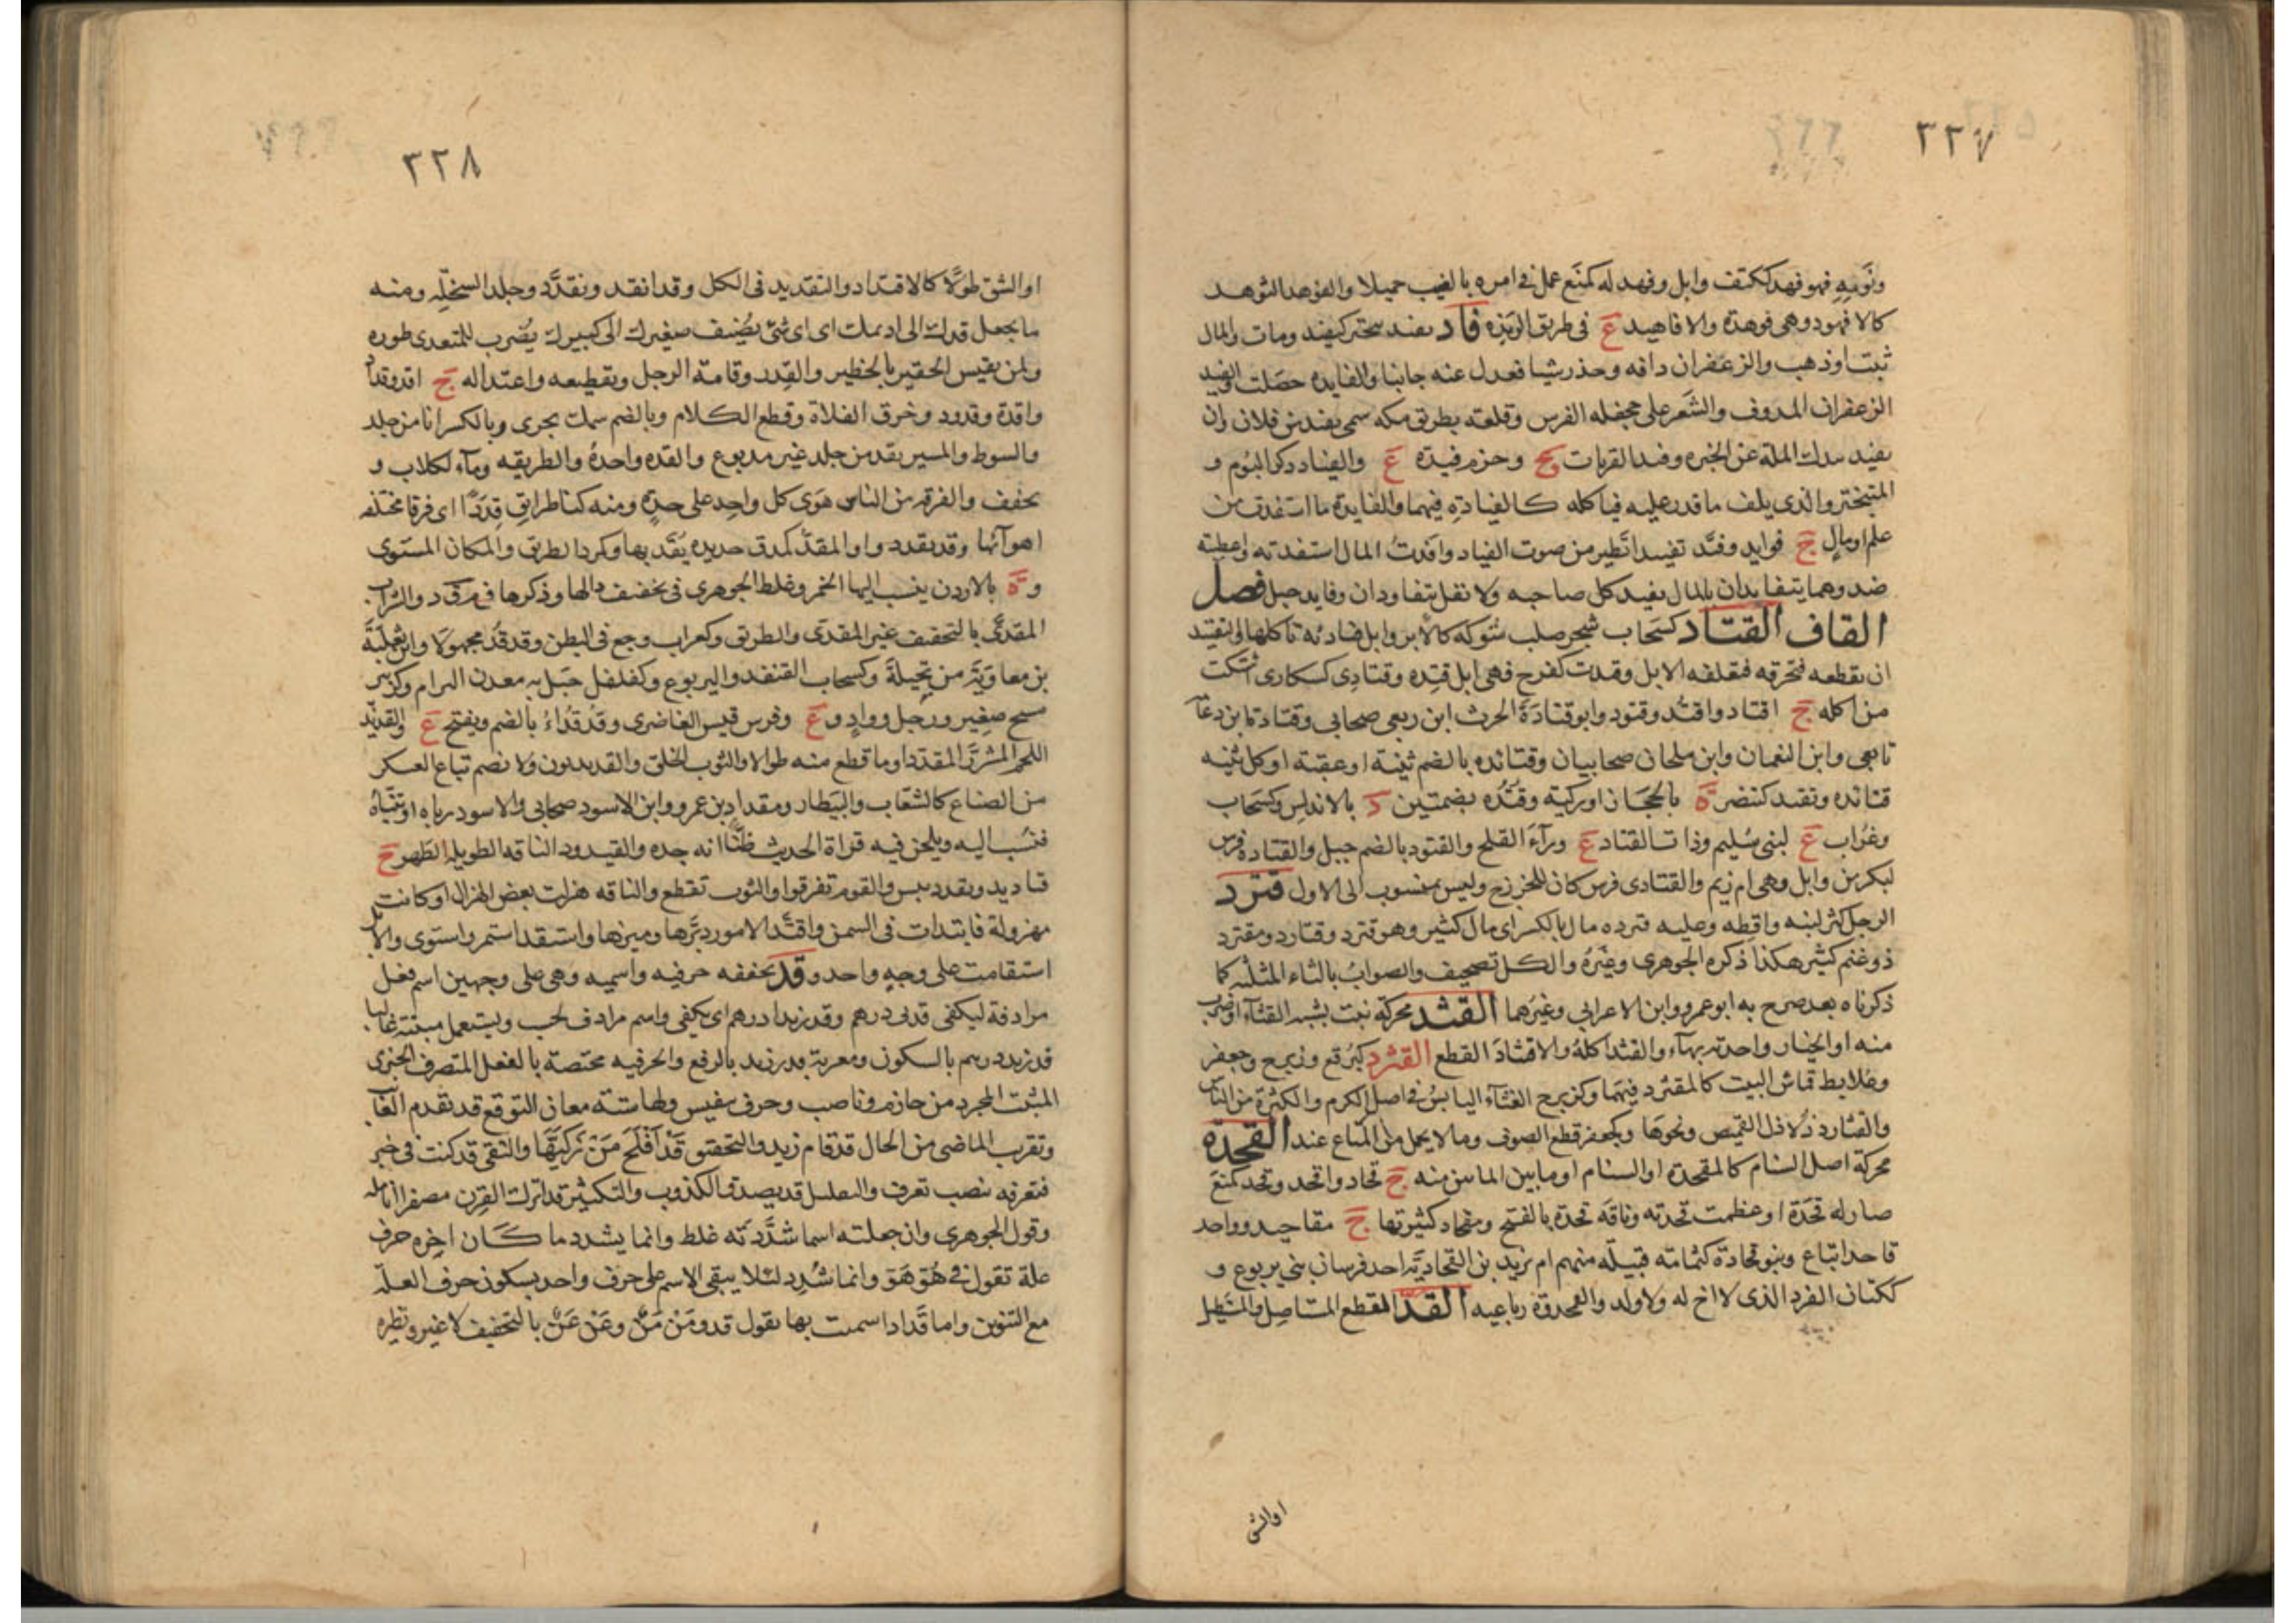 ٣٢٧
ونومه فهو فهد ككتف وابل وفهد له كمنع عمل في امره بالغيب جميلا والفوهد الثوهد
كالافهود وهي فوهدة والافاهيد ع في طريق الربذة فاد يفيد تبختر كيفيد ومات والمال
ثبت اوذهب والزعفران دافه وحذر شيا فعدل عنه جانبا والفايدة حصلت والفيد
الزعفران المدوف والشعر على جحفلة الفرس وقلعة بطريق مكه سمي بفيد بن فلان وان
يفيد بيدك الملة عن الخبزه وفيد القريات ع وحزم فيدة ع والفياد ذكر البوم و
المتبختر والذي يلف ما قدر عليه فياكله كالفيادة فيهما والفايدة ما استفدت من
علم اومال ج فوايد وفيد تفييدا تطير من صوت الفياد وافدت المال استفدته واعطيته
ضد وهما يتفايدان بالمال يفيد كل صاحبه ولا تقل يتفاودان وفايد جبل فصل
القاف القتاد كسحاب شجر صلب شوكه كالابر وابل قتادية تاكلها والتقتيد
ان يقطعه فيحرقه فيعلفه الابل وقتدت كفرح فهي ابل قتده وقتادى كسكارى اشتكت
من اكله ج اقتاد واقتد وقتود وابو قتادة الحرث ابن ربعي صحابي وقتادة بن دعامة
تابعي وابن النعمان وابن ملحان صحابيان وقتائده بالضم ثنية او عقبة او كل ثنيه
قتائده وتقتد كتنضر ة بالحجاز او ركية وقتده بضمتين د بالاندلس وكسحاب
وغراب ع لبني سليم وذات القتاد ع ورآء الفلج والقتود بالضم جبل والقتادة فرس
لبكر بن وابل وهي ام زيم والقتادى فرس كان للخزرج وليس بمنسوب الى الاول قترد
الرجل كثر لبنه واقطه وعليه قترده مال بالكسر اي مال كثير وهو قترد وقتارد ومقترد
ذو غنم كثير هكذا ذكره الجوهري وغيره والكل تصحيف والصواب بالثاء المثلثه كما
ذكرناه بعد صرح به ابو عمرو وابن الاعرابي وغيرهما القثد محركة نبت يشبه القثآء اوضرب
منه او الخيار واحدته بهآء والقثد اكله والاقثاد القطع القثرد كبرقع وزبرج وجعفر
وعلابط قماش البيت كالمقثرد فيهما وكزبرج الغثآء اليابس في اصل الكرم والكثرة من الناس
والقثارد ذلاذل القميص ونحوها وكجعفر قطع الصوف وما لا يحمل من المتاع عند القحدة
محركة اصل السنام كالمقحدة او السنام او ما بين الماسن منه ج قحاد واقحد وقحد كمنع
صار له قحدة او عظمت قحدته وناقة قحدة بالفتح ومقحاد كثيرتها ج مقاحيد وواحد
قاحد اتباع وبنو قحادة كثمامة قبيلة منهم ام يزيد بن القحادية احد فرسان بني يربوع و
ككتان الفرد الذي لا اخ له ولا ولد والقمحدوة رباعيه القد القطع المستاصل والمستطيل
او الشق
٣٢٨
او الشق طولا كالاقتداد والتقديد في الكل وقد انقد وتقدد وجلد السخلة ومنه
ما يجعل قدك الى اديمك اي اي شئ يضيف صغيرك الى كبيرك يضرب للمتعدى طوره
ولمن يقيس الحقير بالخطير والقدر وقامة الرجل وتقطيعه واعتداله ج اقد وقداد
واقدة وقدود وخرق الفلاة وقطع الكلام وبالضم سمك بحري وبالكسر انا من جلد
والسوط والسير يقد من جلد غير مدبوغ والقده واحدة والطريقه ومآء لكلاب و
يخفف والفرقه من الناس هوى كل واحد على حدة ومنه كنا طرائق قددا اي فرقا مختلفه
اهوآئها وقد تقددوا والمقد كمدق حديدة يقد بها وكمرد الطريق والمكان المستوى
و ة بالاردن ينسب اليها الخمر وغلط الجوهري في تخفيف دالها وذكرها في م ق د والشراب
المقدى بالتخفيف غير المقدى والطريق وكغراب وجع في البطن وقد قد مجهولا وابن ثعلبة
بن معاوية من بجيلة وكسحاب القنفذ واليربوع وكفلفل جبل به معدن البرام وكزبير
مسح صغير ورجل وواد و ع وفرس قيس الغاضرى وقدقداء بالضم ويفتح ع والقديد
اللحم المشرر المقدد او ما قطع منه طوالا والثوب الخلق والقديديون ولا تضم تباع العسكر
من الصناع كالشعاب والبيطار ومقداد بن عمرو وابن الاسود صحابي والاسود رباه او تبناه
فنسب اليه ويلحن فيه قراة الحديث ظنا انه جده والقيدود الناقة الطويلة الظهر ج
قناديد وتقدد يبس والقوم تفرقوا والثوب تقطع والناقه هزلت بعض الهزال او كانت
مهزولة فابتدات في السمن واقتد الامور دبرها وميزها واستقد استمر واستوى والابل
استقامت على وجه واحد وقد مخففه حرفيه واسميه وهي على وجهين اسم فعل
مرادفة ليكفي قدني درهم وقد زيدا درهم اي يكفي واسم مرادف لحسب ويستعمل مبنية غالبا
قد زيد درهم بالسكون ومعربة قد زيد بالرفع والحرفيه مختصة بالفعل المتصرف الخبري
المثبت المجرد من جازم وناصب وحرف تنفيس ولها ستة معان التوقع قد يقدم الغائب
وتقريب الماضي من الحال قد قام زيد والتحقيق قد افلح من زكيها والنفي قد كنت في خير
فتعرفه بنصب تعرف والتعليل قد يصدق الكذوب والتكثير قد اترك القرن مصفرا انامله
وقول الجوهري وان جعلته اسما شددته غلط وانما يشدد ما كان اخره حرف
علة تقول في هو هو وانما شدد لئلا يبقى الاسم على حرف واحد بسكون حرف العلة
مع التنوين واما قد اذا سميت بها تقول قد ومن من وعن عن بالتخفيف لا غير ونظيره